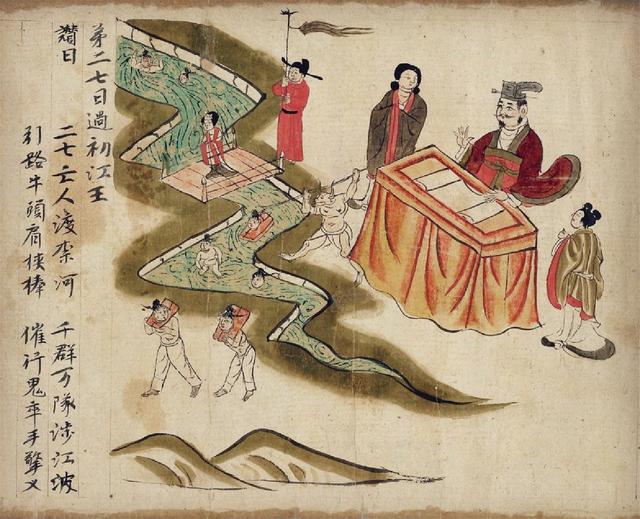 第二七日過初江王
讃曰 二七亡人渡柰河 千群万隊涉江波
引路牛頭肩挾棒 催行鬼卒手擎叉